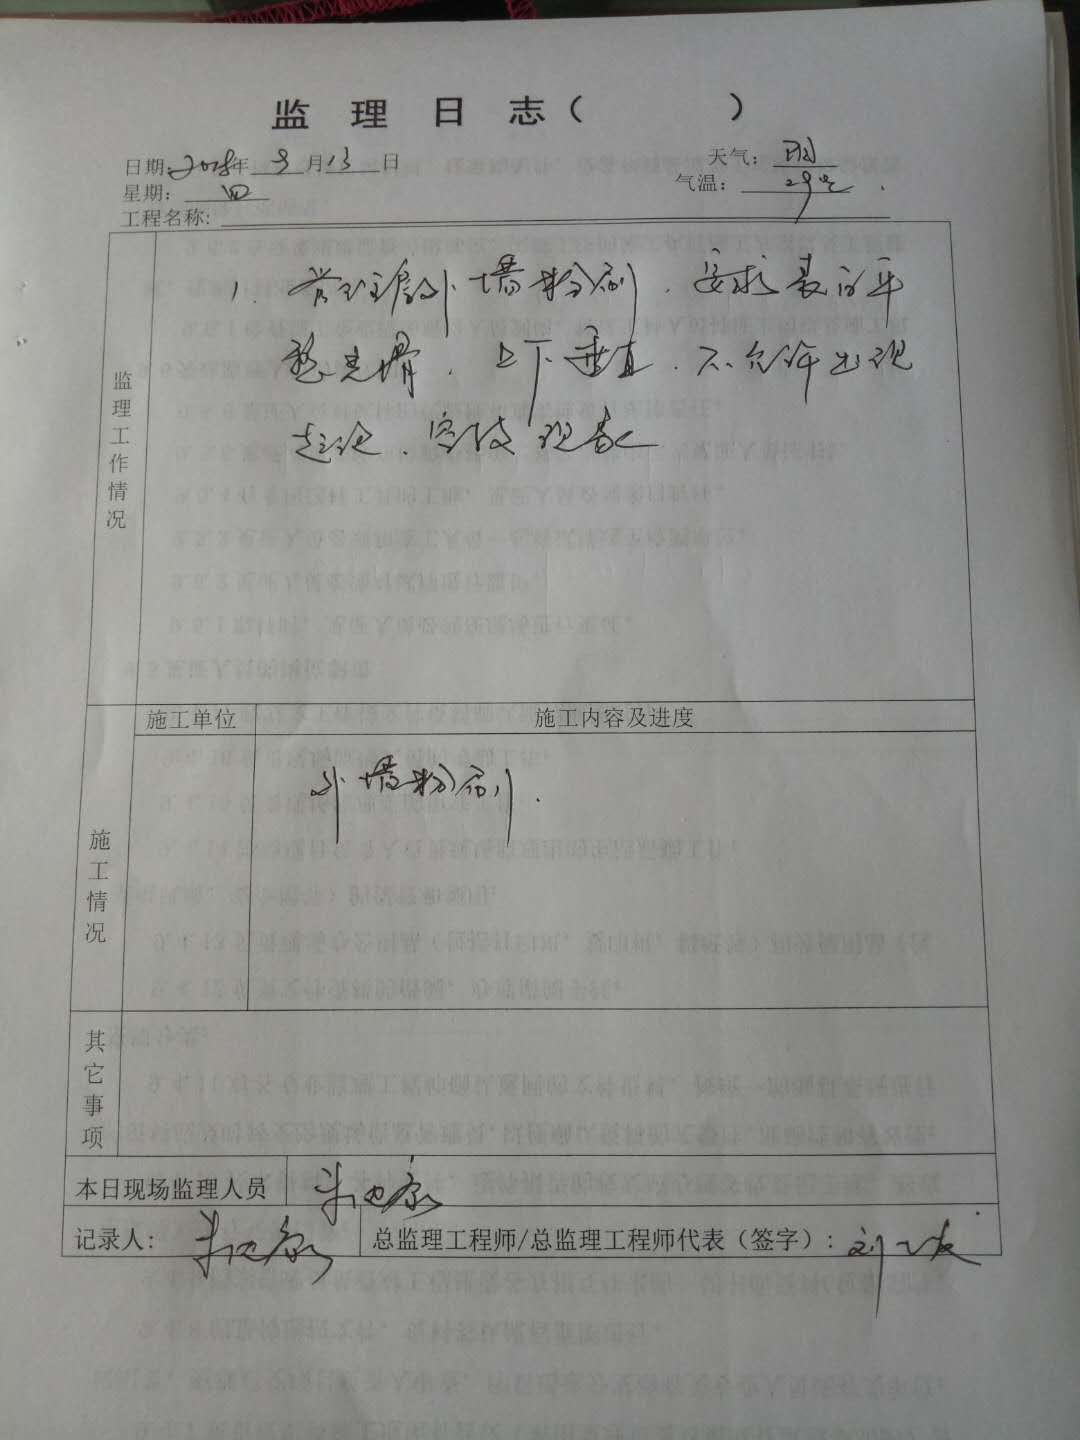 监 理 日 志 （ ）
日期：2018年 9月13日 天气：雨
星期：四 气温：29℃
工程名称：
监理工作情况
1. 管理房外墙粉刷，要求表面平
整光滑，上下垂直，不允许出现
空鼓现象
施工情况
施工单位 施工内容及进度
外墙粉刷.
其它事项
本日现场监理人员
记录人： 总监理工程师/总监理工程师代表（签字）：刘